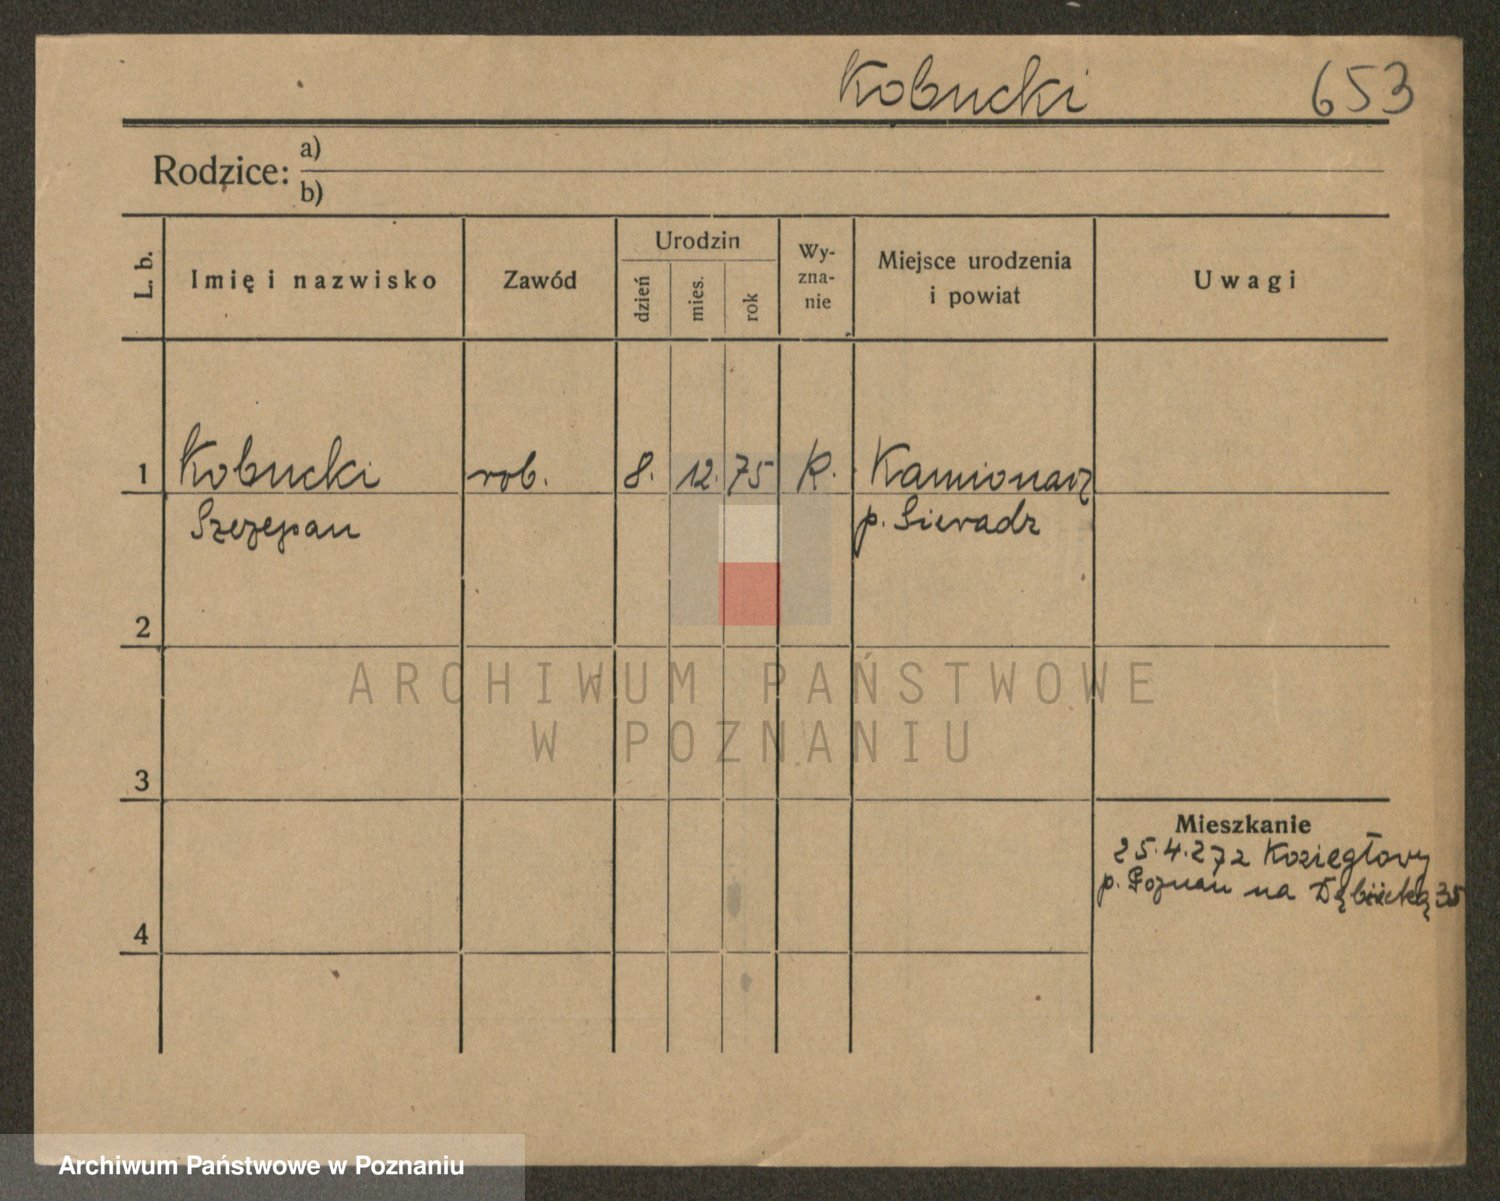 Kobucki 653
Rodzice: a)
b)
L. b. Imię i nazwisko Zawód Urodzin dzień mies. rok Wy-zna-nie Miejsce urodzenia i powiat Uwagi
1 Kobucki rob. 8. 12. 75 R. Kamionacz
Szczepan p. Sieradz
2
ARCHIWUM PAŃSTWOWE
W POZNANIU
3
Mieszkanie
25.4.27 z Koziegłowy
p. Poznań na 35
4
Archiwum Państwowe w Poznaniu